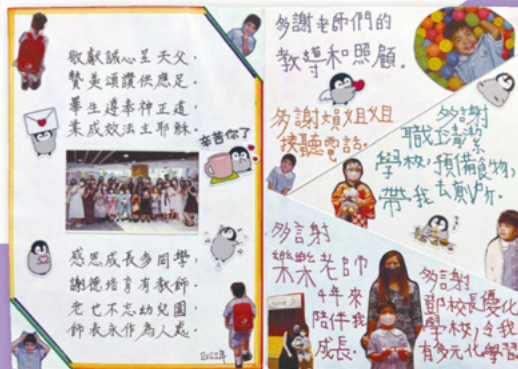 敬獻誠心呈天父，
贊美頌讚供應足。
畢生遵奉神正道，
業成效法主耶穌。
辛苦你了
感恩成長多同學，
謝德培育有教師。
老也不忘幼兒園，
師長永作為人處。
2022年
多謝老師們的
教導和照顧。
多謝煩姐姐
接聽電話。
多謝
職工清潔
學校，預備食物，
帶我去廁所。
多謝
樂樂老師
4年來
陪伴我
成長。
多謝
鄧校長優化
學校，令我
有多元化學習